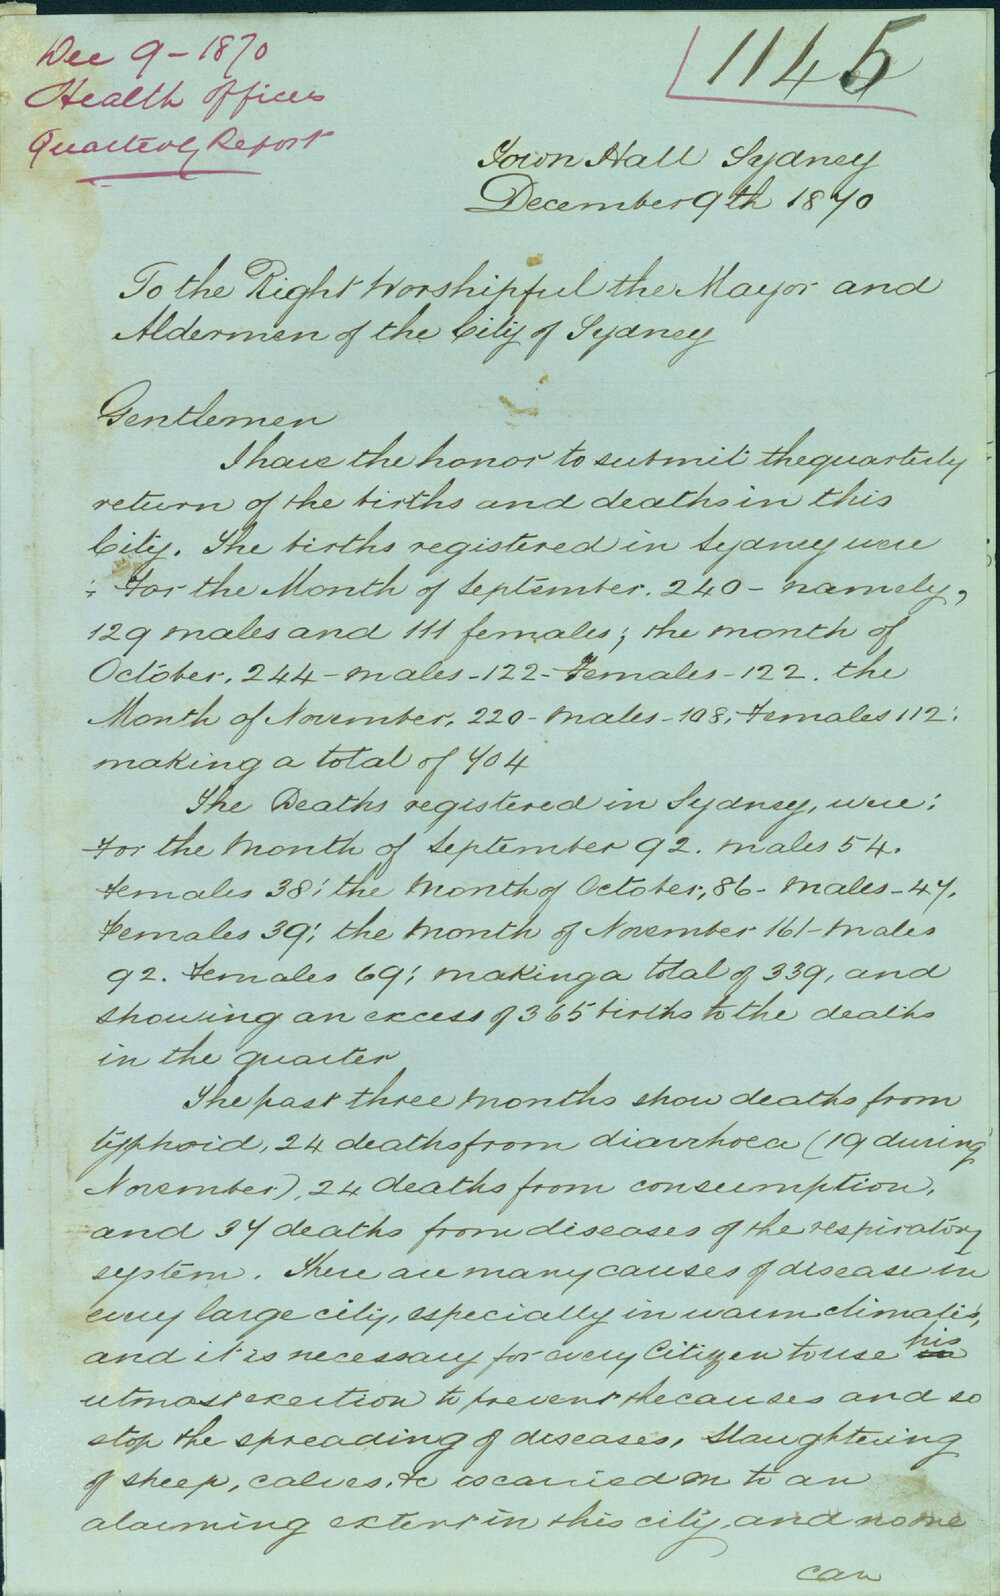 Dec 9 - 1870
Health Officers
Quarterly Report
1145
Town Hall Sydney
December 9th 1870
To the Right Worshipful the Mayor and
Aldermen of the City of Sydney
Gentlemen
I have the honor to submit the quarterly
return of the births and deaths in this
City. The births registered in Sydney were
: For the Month of September. 240 - namely,
129 males and 111 females; the month of
October. 244 - males - 122 - Females - 122. the
Month of November. 220 - Males - 108, Females 112;
making a total of 704
The Deaths registered in Sydney, were;
For the Month of September 92. males 54.
Females 38; the Month of October, 86 - Males - 47.
Females 39; the Month of November 161 - Males
92. Females 69; making a total of 339, and
showing an excess of 365 births to the deaths
in the quarter
The past three Months show deaths from
typhoid, 24 deaths from diarrhoea (19 during
November), 24 deaths from consumption,
and 37 deaths from diseases of the respiratory
system. There are many causes of disease in
every large city, especially in warm climates,
and it is necessary for every Citizen to use his
utmost exertion to prevent the causes and so
stop the spreading of diseases, Slaughtering
of sheep, calves, &c is carried on to an
alarming extent in this city, and no one
can